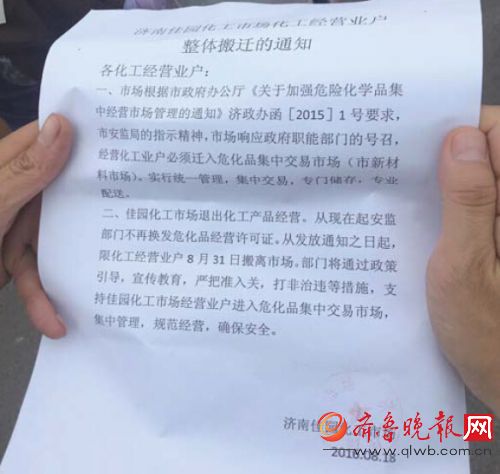 济南佳园化工市场化工经营业户
整体搬迁的通知
各化工经营业户：
一、市场根据市政府办公厅《关于加强危险化学品集
中经营市场管理的通知》济政办函［2015］1号要求，
市安监局的指示精神，市场响应政府职能部门的号召，
经营化工业户必须迁入危化品集中交易市场（市新材
料市场）。实行统一管理，集中交易，专门储存，专业
配送。
二、佳园化工市场退出化工产品经营。从现在起安监
部门不再换发危化品经营许可证。从发放通知之日起，
限化工经营业户8月31日搬离市场。部门将通过政策
引导，宣传教育，严把准入关，打非治违等措施，支
持佳园化工市场经营业户进入危化品集中交易市场，
集中管理，规范经营，确保安全。
济南佳园化
2016.08.18
齐鲁晚报网
www.qlwb.com.cn